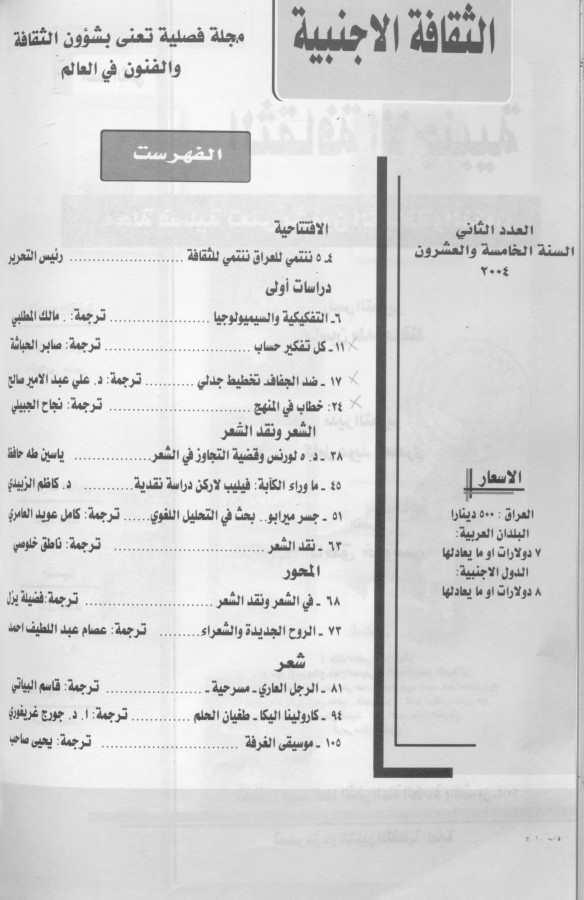 الثقافة الاجنبية
مجلة فصلية تعنى بشؤون الثقافة
والفنون في العالم
الفهرست
العدد الثاني
السنة الخامسة والعشرون
٢٠٠٤
الافتتاحية
٤ـ ٥ ننتمي للعراق ننتمي للثقافة ........................ رئيس التحرير
دراسات أولى
٦ـ التفكيكية والسيميولوجيا ................... ترجمة: . مالك المطلبي
١١ـ كل تفكير حساب ........................... ترجمة: صابر الحباشة
١٧ ـ ضد الجفاف تخطيط جدلي .............. ترجمة: د. علي عبد الامير صالح
٢٤: خطاب في المنهج ........................... ترجمة: نجاح الجبيلي
الشعر ونقد الشعر
٣٨ ـ د. ه لورنس وقضية التجاوز في الشعر................ ياسين طه حافظ
٤٥ ـ ما وراء الكآبة: فيليب لاركن دراسة نقدية ............. د. كاظم الزبيدي
٥١ ـ جسر ميرابو.. بحث في التحليل اللغوي .... ترجمة: كامل عويد العامري
٦٣ ـ نقد الشعر ............................ ترجمة: ناطق خلوصي
المحور
٦٨ ـ في الشعر ونقد الشعر ...................... ترجمة:فضيلة يزل
٧٣ ـ الروح الجديدة والشعراء................... ترجمة: عصام عبد اللطيف احمد
شعر
٨١ ـ الرجل العاري ـ مسرحية ـ .................. ترجمة: قاسم البياتي
٩٤ ـ كارولينا اليكا ـ طغيان الحلم ............. ترجمة: ا. د. جورج غريغوري
١٠٥ ـ موسيقى الغرفة ........................ ترجمة: يحيى صاحب
الاسعار
العراق : ٥٠٠ دينارا
البلدان العربية:
٧ دولارات او ما يعادلها
الدول الاجنبية:
٨ دولارات او ما يعادلها